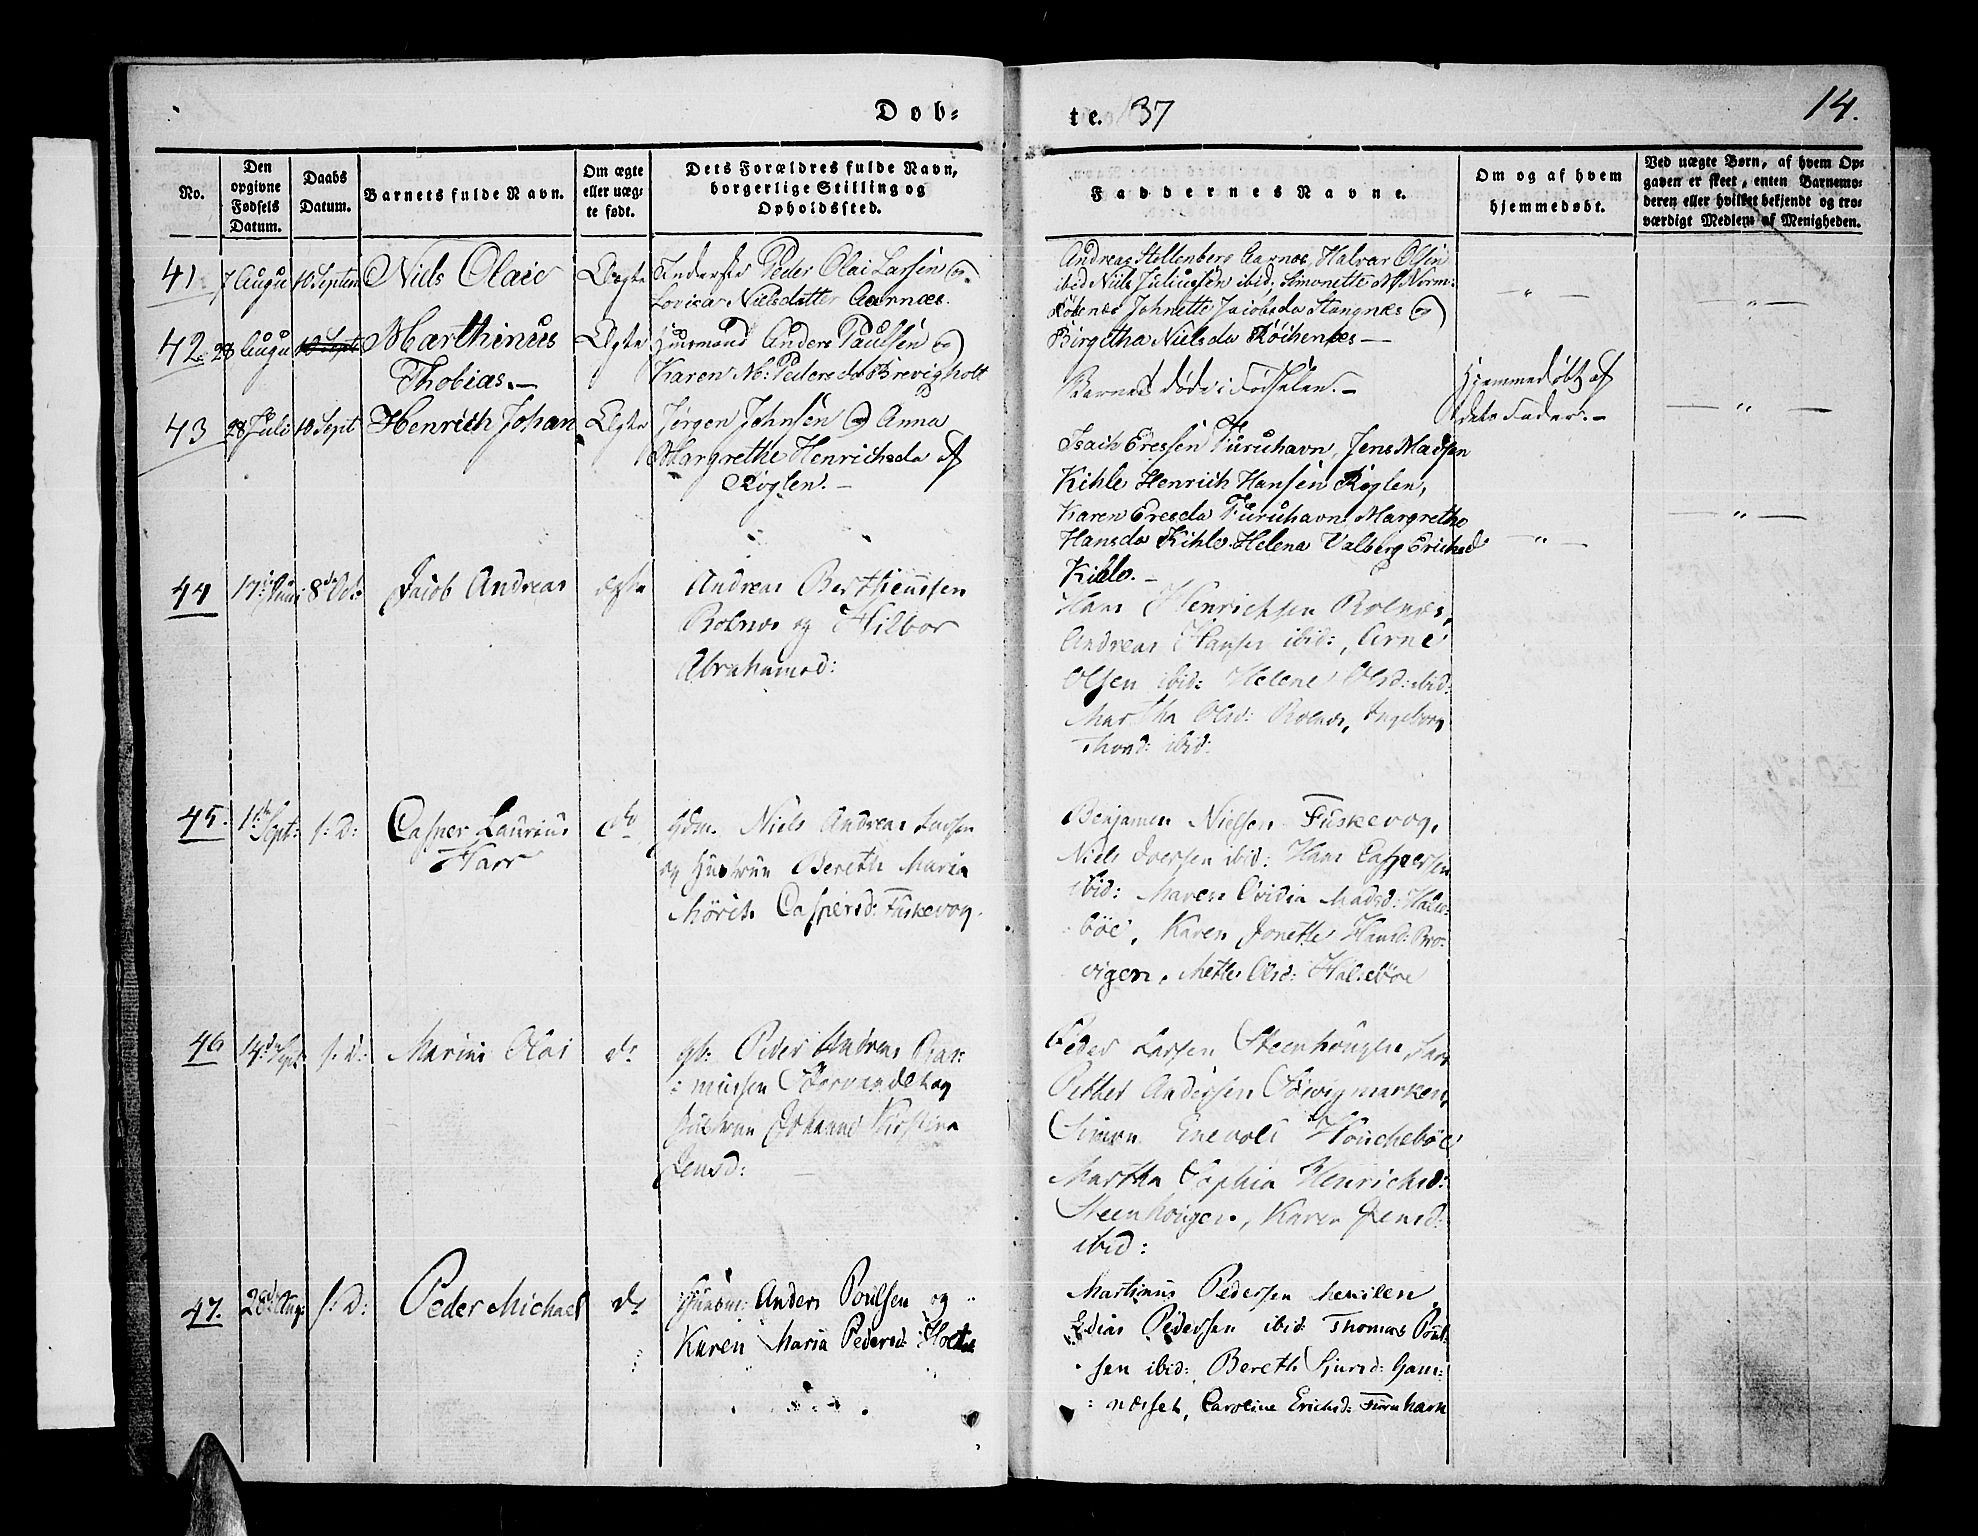 Døb-
te. 37
14.
No.
Den
opgivne
Fødsels
Datum.
Daabs
Datum.
Barnets fulde Navn.
Om ægte
eller uæg-
te født.
Dets Forældres fulde Navn,
borgerlige Stilling og
Opholdssted.
Faddernes Navne.
Om og af hvem
hjemmedøbt.
Ved uægte Børn, af hvem Op-
gaven er skeet, enten Barnemo-
deren eller hvilket bekjendt og tro-
værdigt Medlem af Menigheden.
41.
7 Augu
10 Septem
Niels Olai
Ægte
Peder Olai Larsen og
Lovica Nielsdatter Aarnæs.
Andreas Stellenberg Aarnæs, Halvar Olsen
ibid Niels Juliussen ibid, Simonette M Norm:
Johnette Jacobsda Stangnæs og
Birgitha Nielsda
— " —
— " —
42.
28 Augu
10 Sept
Marthinus
Thobias. —
Ægte
Huusmand Anders Paulsen og
Karen M: Pedersda Brevig holt
Barnet døde i Fødselen. —
Hjemmedøbt af
dets Fader. —
— " —
43
28 Juli
10 Sept
Henrich Johan
Ægte
Jørgen Johnsen og Anna
Margrethe Henrichsda af
Røglen. —
Isach Eressen Furuhavn, Jens Madsen
Kihle Henrich Hansen Røglen,
Karen Eresda Furuhavn Margrethe
Hansda Kihle Helena Valberg Erichsd
Kihle. —
— " —
— " —
44
17 Juni
8d Oct:
Jacob Andreas
ægte
Andreas Bertheussen
Rolnæs og Hilbor
Abrahamsd:
Hans Henrichsen Rolnæs,
Andreas Hansen ibid:, Arne
Olsen ibid: Helene Olsd: ibid:
Martha Olsd: Rolnæs, Ingeborg
ibid:
45.
1d Sept:
s: D:
Casper Laurius
Harr
do
Gdm. Niels Andreas Larsen
og Hustrue Bereth Maria
Mörch Caspersd: Fuskevog.
Benjamin Nielsen Fuskevog,
Niels Iversen ibid: Hans Caspersen
ibid: Maren Ovidia Madsd: Halse-
böe, Karen Jonette Hansd: Bre-
vigen, Mette Olsd: Halseböe
46
14d Sept:
s: D:
Marius Olai
do
gb: Peder Andreas Ras:
:mussen og
Hustrue Johanne Kirstine
Jensd: —
Peder Larsen Steenhougen, Lars
Petter Andersen
Simon Enevold Houcheböe
Martha Sophia Henrichsd:
Steenhougen, Karen Jensd:
ibid:
47.
28d Aug:
s: D:
Peder Michael
do
Huusm: Anders Poulsen og
Karen Maria Pedersd:
Martinus Pedersen
Edias Pedersen ibid: Thomas Poul-
sen ibid: Bereth Sjursd: Gam:
:næsset, Caroline Erichsd: Furuhavn